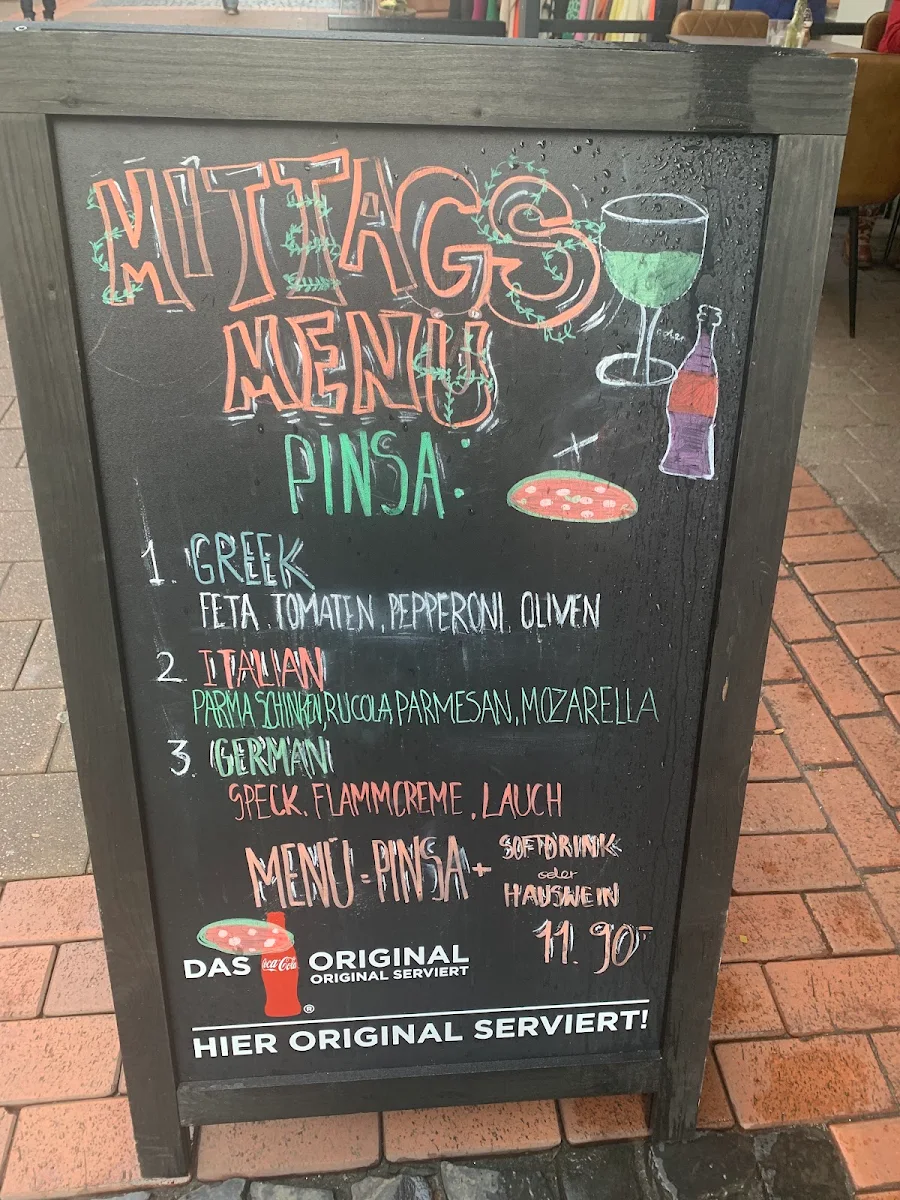 MITTAGS
MENÜ
oder
PINSA:
+
1. GREEK
FETA, TOMATEN, PEPPERONI, OLIVEN
2. ITALIAN
PARMA SCHINKEN, RUCOLA PARMESAN, MOZARELLA
3. GERMAN
SPECK, FLAMMCREME, LAUCH
MENÜ = PINSA + SOFTDRINK
oder
HAUSWEIN
11.90-
DAS Coca-Cola ORIGINAL
ORIGINAL SERVIERT
®
HIER ORIGINAL SERVIERT!